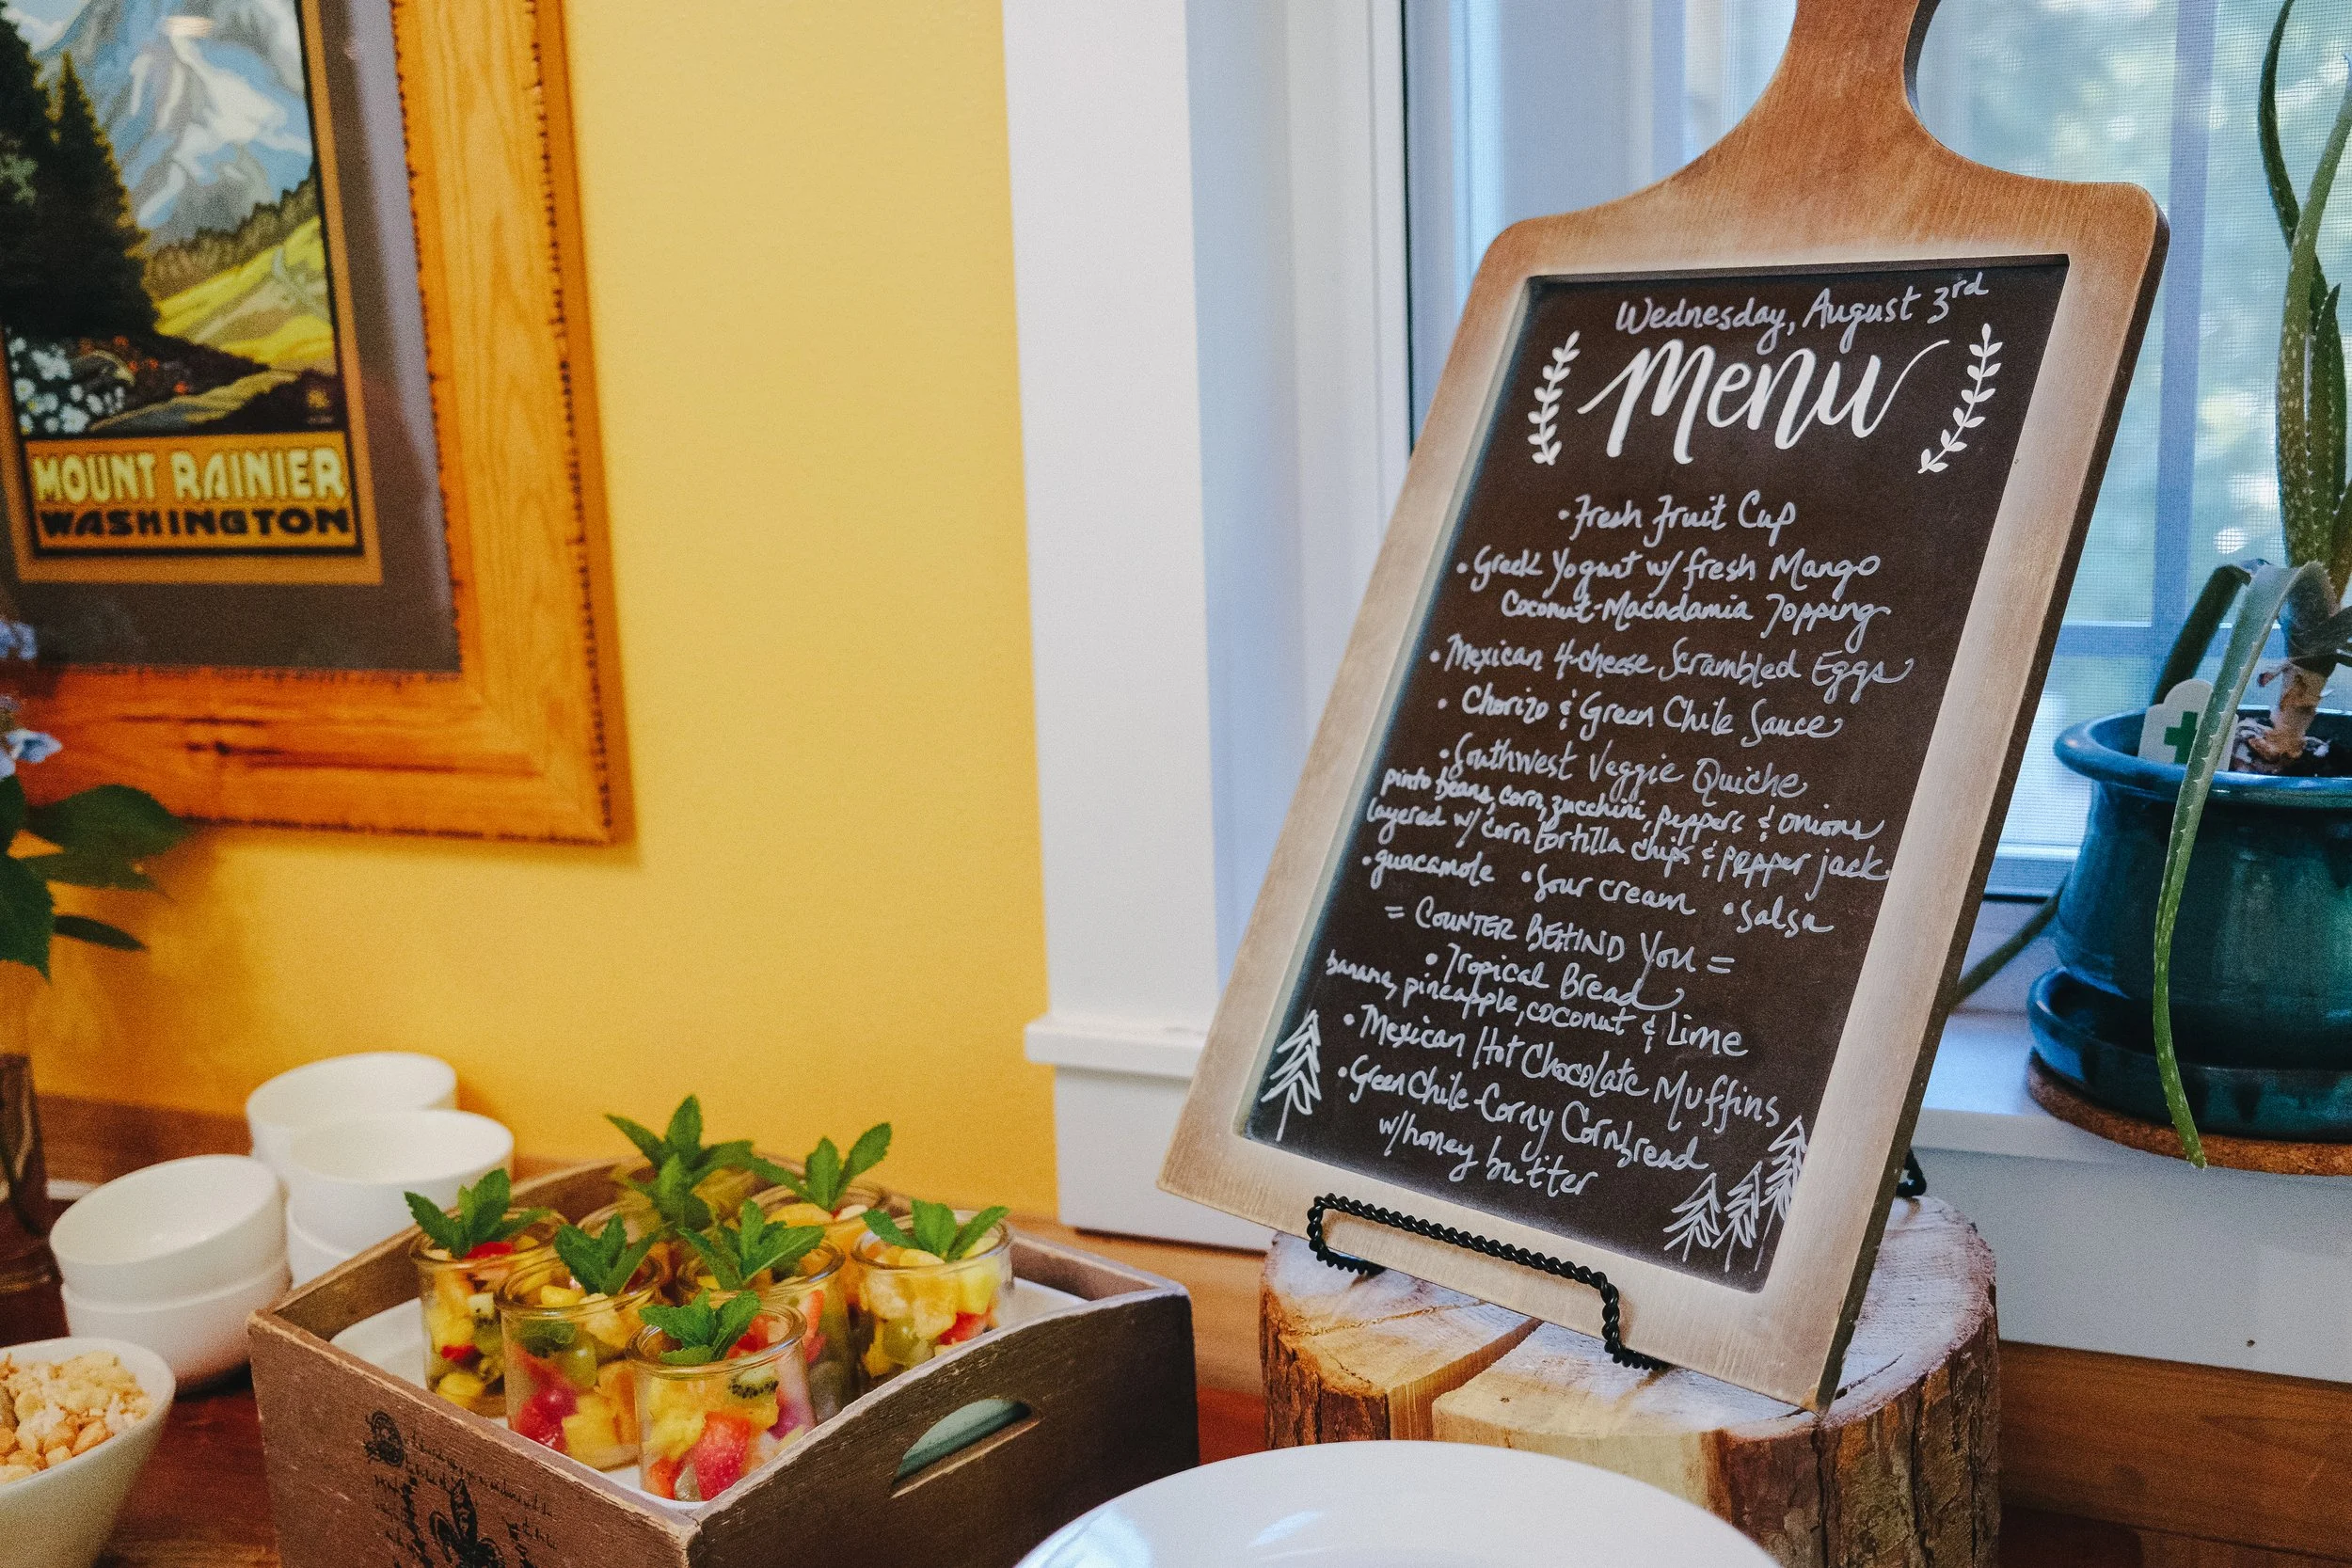 MOUNT RAINIER
WASHINGTON
Wednesday, August 3rd
Menu
• Fresh Fruit Cup
• Greek Yogurt w/ fresh Mango
Coconut-Macadamia Topping
• Mexican 4-cheese Scrambled Eggs
• Chorizo & Green Chile Sauce
• Southwest Veggie Quiche
pinto beans, corn, zucchini, peppers & onions
layered w/ corn tortilla chips & pepper jack
• guacamole • Sour cream • Salsa
= COUNTER BEHIND YOU =
• Tropical Bread
banana, pineapple, coconut & Lime
• Mexican Hot Chocolate Muffins
• Green Chile-Corny Cornbread
w/ honey butter